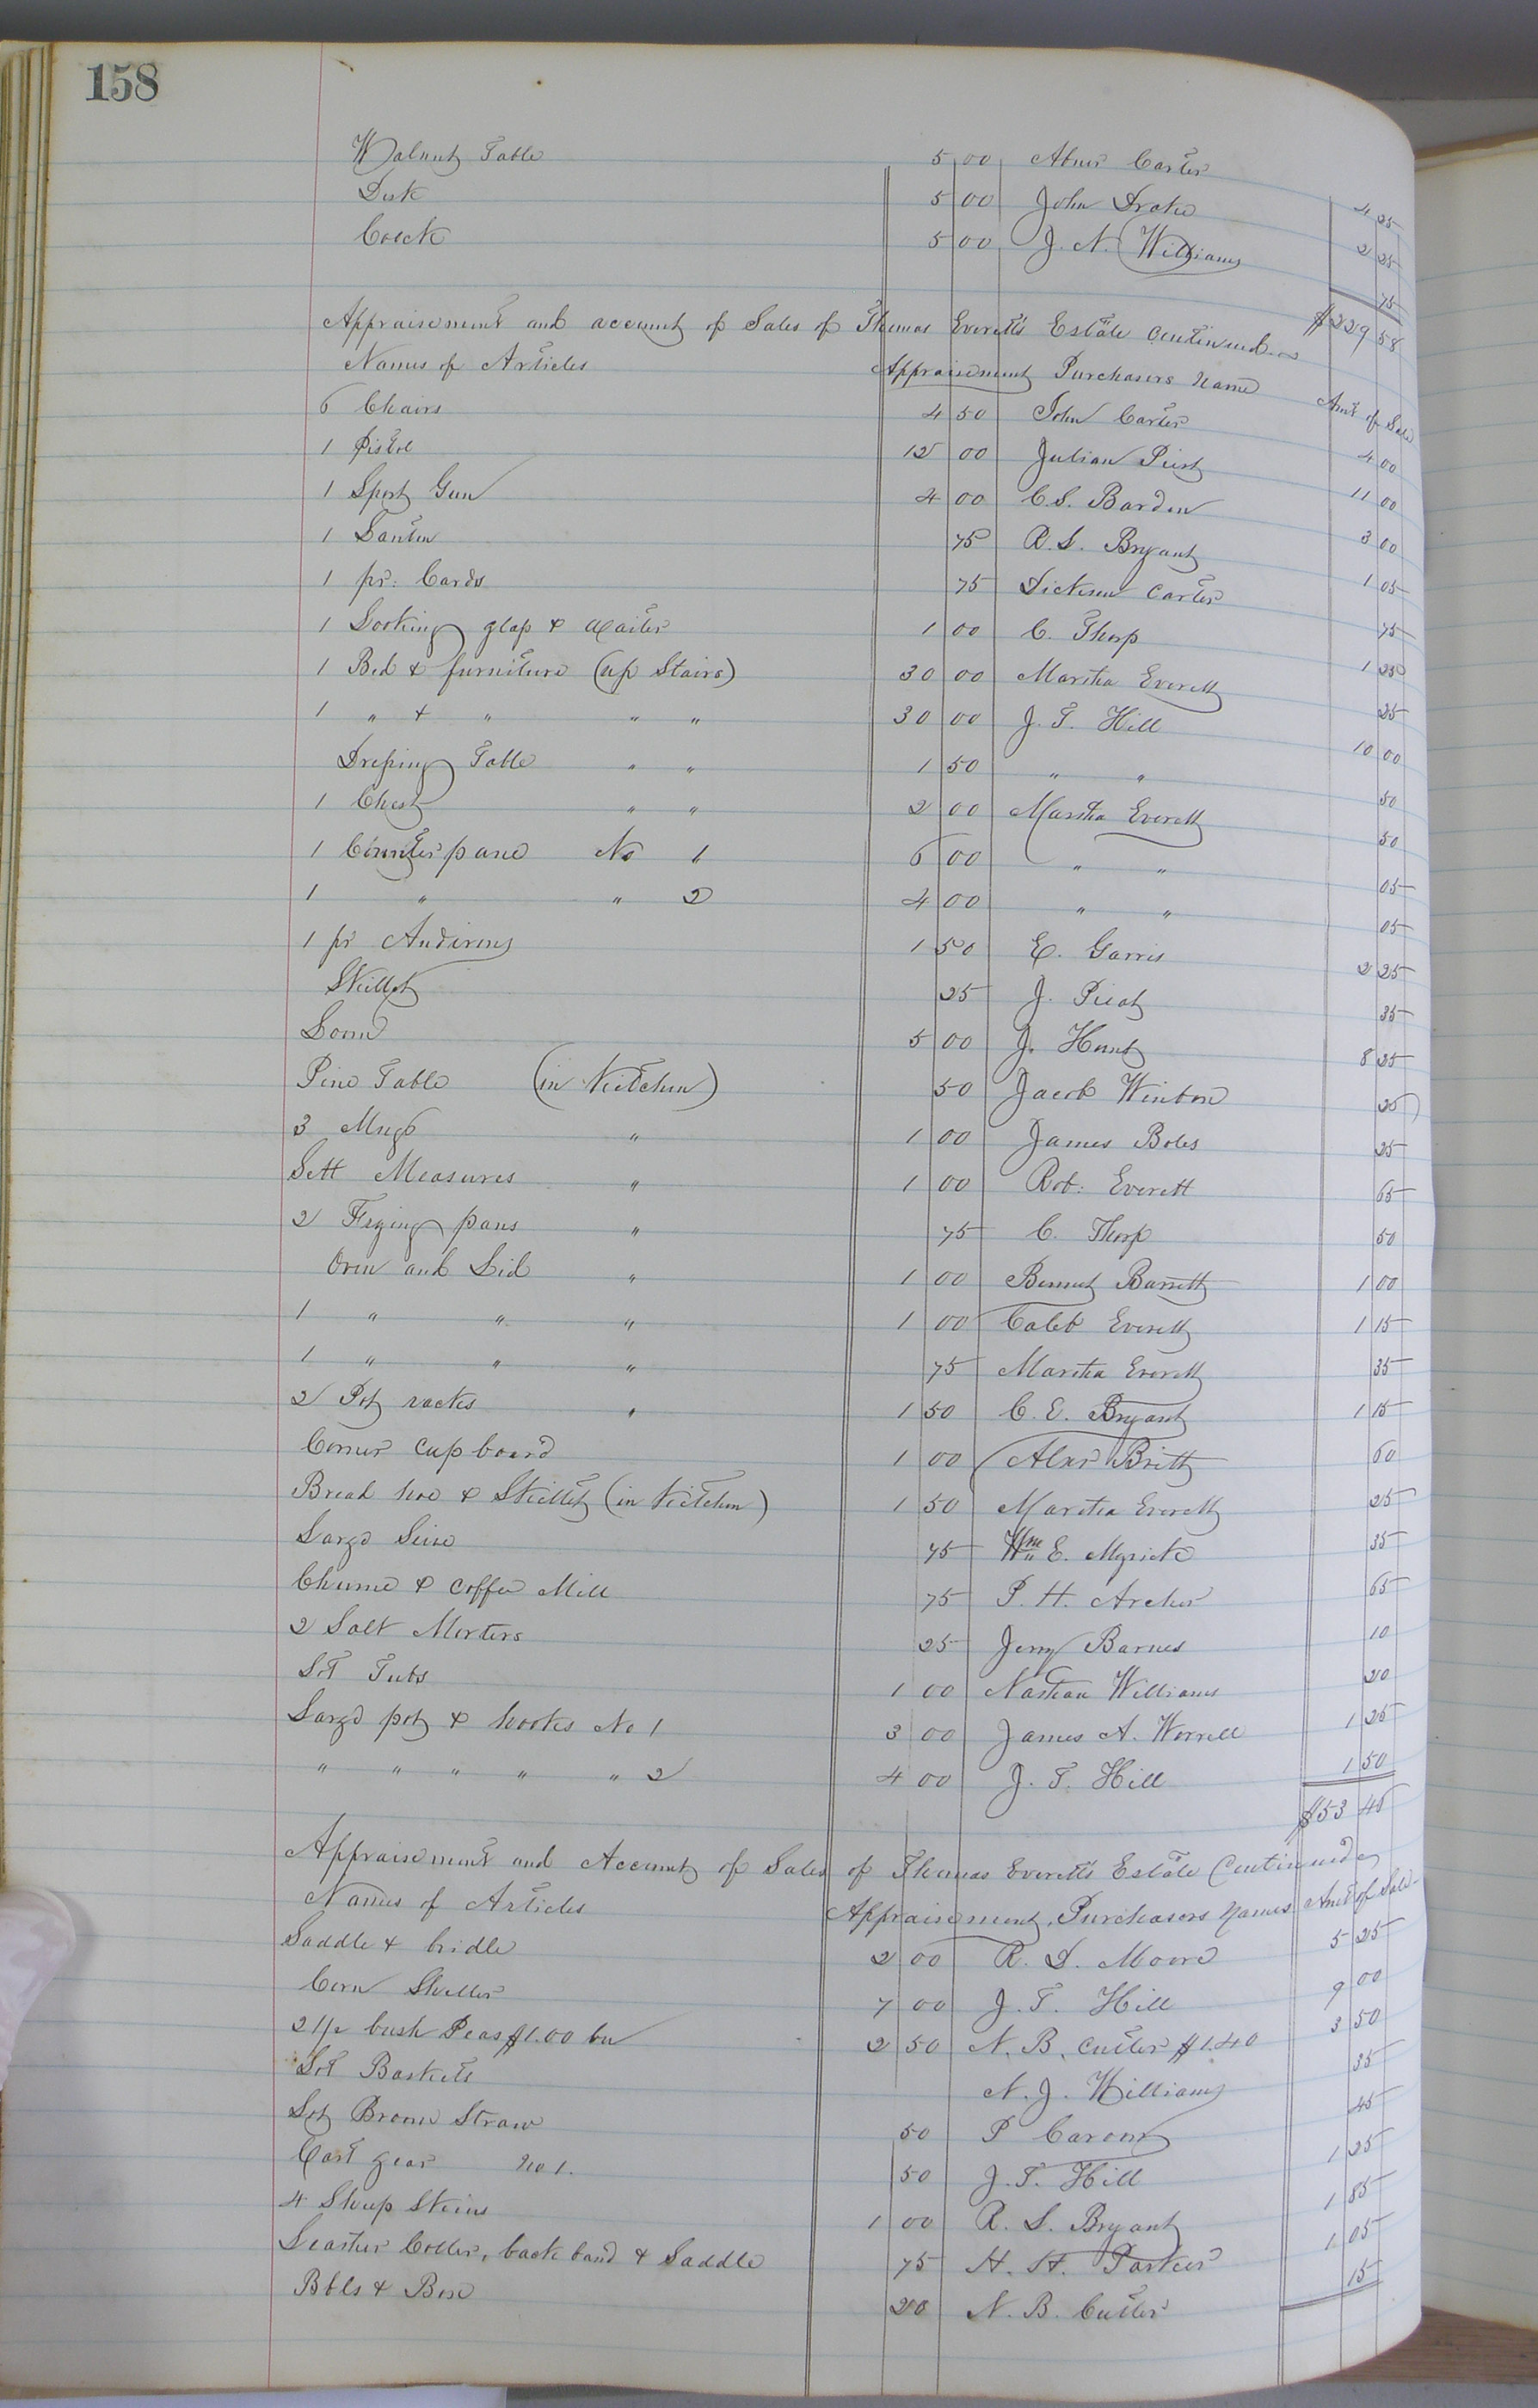 158
Walnut Table 5 00 Abner Carter 4 25
Desk 5 00 John Drake 2 25
Colck 5 00 J. N. Williams 75
$229 58
Appraisement and account of Sales of Thomas Everett's Estate Continued
Names of Articles Appraisement Purchasers name Amt of Sale
6 Chairs 4 50 John Carter 4 00
1 Pistol 12 00 Julian Picot 11 00
1 Sport Gun 4 00 C. S. Barden 3 00
1 Lanten 75 R. S. Bryant 1 05
1 pr: Cards 75 Dickson Carter 75
1 Looking glass & Waiter 1 00 C. Thorp 1 25
1 Bed & furniture (up Stairs) 30 00 Martha Everett 25
1 " & " " " 30 00 J. T. Hill 10 00
Dressing Table " " 1 50 " " 50
1 Chest " " 2 00 Martha Everett 50
1 Counterpane No 1 6 00 " " 05
1 " " 2 4 00 " " 05
1 pr Andirons 1 50 E. Garris 2 25
Skillet 25 J. Picot 35
Loom 5 00 J. Hunt 8 25
Pine Table (in Kitchen) 50 Jacob Winborn 25
3 Mugs " 1 00 James Boles 25
Sett Measures " 1 00 Rob: Everett 65
2 Frying pans " 75 C. Thorp 50
Oven and Lid " 1 00 Bennet Barrett 1 00
1 " " " 1 00 Caleb Everett 1 15
1 " " " 75 Martha Everett 35
2 Pot racks " 1 50 C. E. Bryant 1 15
Corner Cupboard 1 00 Alxr Britt 60
Bread hoe & Skillet (in Kitchen) 1 50 Martha Everett 25
Large Seive 75 Wm E. Myrick 35
Churne & Coffee Mill 75 P. H. Archer 65
2 Salt Morters 25 Jerry Barnes 10
Lot Tubs 1 00 Nathan Williams 20
Large pot & hooks No 1 3 00 James A. Worrell 1 25
" " " " " 2 4 00 J. T. Hill 1 50
$53 45
Appraisement and Account of Sales of Thomas Everett's Estate Continued
Names of Articles Appraisement Purchasers Names Amt of Sale
Saddle & bridle 2 00 R. D. Moore 5 25
Corn Sheller 7 00 J. T. Hill 9 00
2 1/2 bush Peas $1.00 bu 2 50 N. B. Cutler $1.40 3 50
Lot Baskets N. J. Williams 35
Lot Broom Straw 50 P 45
Cart gear No 1. 50 J. T. Hill 1 25
4 Sheep Skins 1 00 R. S. Bryant 1 85
Leather Coller, back band & Saddle 75 H. H. Parker 1 05
Bbls & Box 20 N. B. Cutler 15